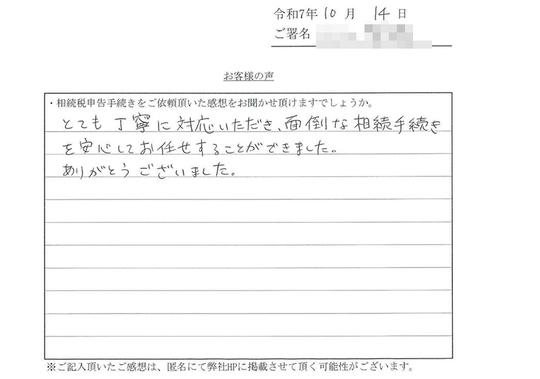 令和7年 10 月 14 日
ご署名
お客様の声
・相続税申告手続きをご依頼頂いた感想をお聞かせ頂けますでしょうか。
とても丁寧に対応いただき、面倒な相続手続き
を安心してお任せすることができました。
ありがとうございました。
※ご記入頂いたご感想は、匿名にて弊社HPに掲載させて頂く可能性がございます。